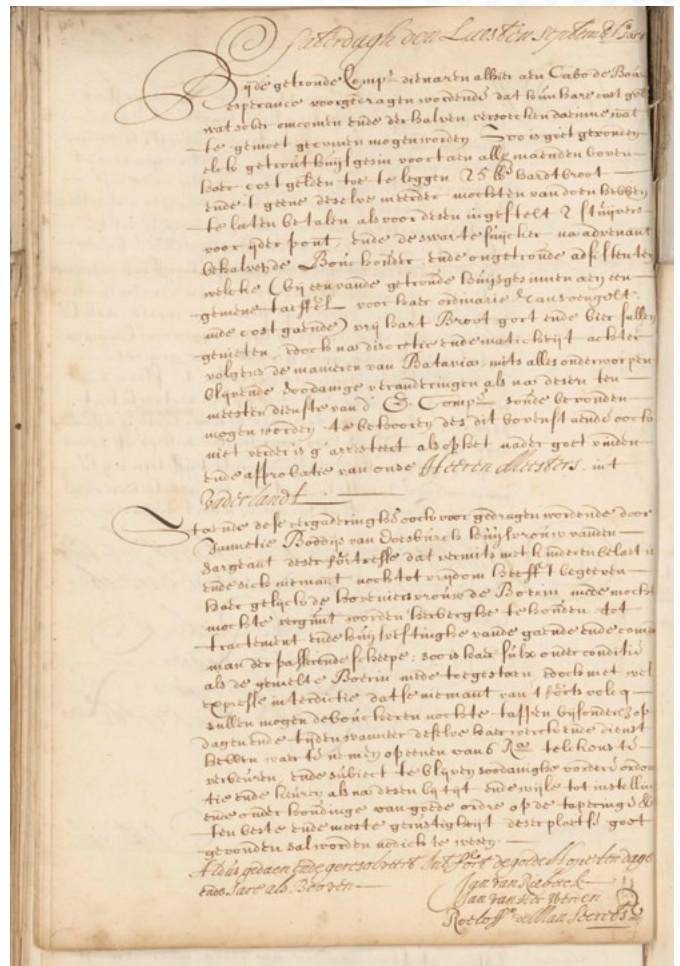 Saterdagh den Laesten September
Bijde getroude Compes dienaren alhier aen Cabo de Boa
esperance voorgedragen wordende dat hun hare cost gelt
wat sober omcomen ende derhalven versoecken daerinne wat
te gemoet gecomen mogen worden Soo is goet gevonden
elck getrout huijsgesin voortaen alle maenden boven
haer costgelden toe te leggen 25 lb hardt broot
ende 't geene deselve meerder mochten van doen hebben
te laten betalen als voor desen ingestelt 2 stuijvers
voor ijder pont, ende de swarte suijcker na advenant
behalven de Bouckhouder, ende ongetroude assistenten
welcke (bij een vande getroude huijsgesinnen aen een
gemeene taeffel voor haer ordinarie rantsoengelt
ende cost gaende) vrij hart Broot gort ende bier sullen
genieten, doch na discretie ende maticheijt achter
volgens de manieren van Batavia, mits alles onderworpen
blijvende soodanige veranderingen als na desen ten
meesten dienste van d' E. Compe sonde bevonden
mogen worden te behooren des dit bovenstaende oock
niet verder is g'arresteert als op het nader goet vinden
ende approbatie van onse Heeren Meesters in 't
vaderlandt
Staende dese vergaderingh is oock voorgedragen wordende door
Jannetie Boddijs van Doesburch huijsvrouw vanden
sargeant deser fortresse dat vermits met kinderen belast is
ende sich niemant noch tot vrijdom heefft begeven
haer gelijck de hoveniers vrouw de Boerin mede mocht
mochte vergunt worden herberghe te houden tot
tractement ende huijsvestinghe vande gaende ende comende
man der passerende scheepe: soo is haer sulx onder conditie
als de gemelte Boerin mede toegestaen doch met wel
expresse interdictie datse niemant van 't forts volcq
sullen mogen debaucheren noch te tappen bijsonder op
dagen ende tijden wanneer deselve haer werck ende dienst
hebben waer te nemen op peene van 6 Ra telckens te
verbeuren, ende subject te blijven soodanighe vordere ordon
tie ende keuren als na desen bij tijt ende wijle tot instellin
ende onderhoudinge van goede ordre op de tapperijnge &
ten beste ende meeste gerustigheijt deser plaetse goet
gevonden sal worden nodich te wesen.
Aldus gedaen ende geresolveert int fort de goede Hope ten dage
ende Jare als Boven
Jan van Riebeeck
Roeloff de Man Secrets